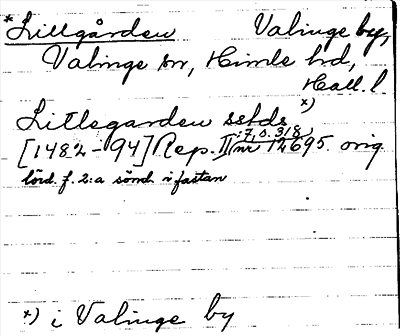 *Lillgården Valinge by,
Valinge sn, Himle hd,
Hall. l
x)
Litlegarden sstds
[1482-94] Rep. II:7, s. 318,
nr 12695. orig
lörd. f. 2:a sönd. i fastan
x) i Valinge by